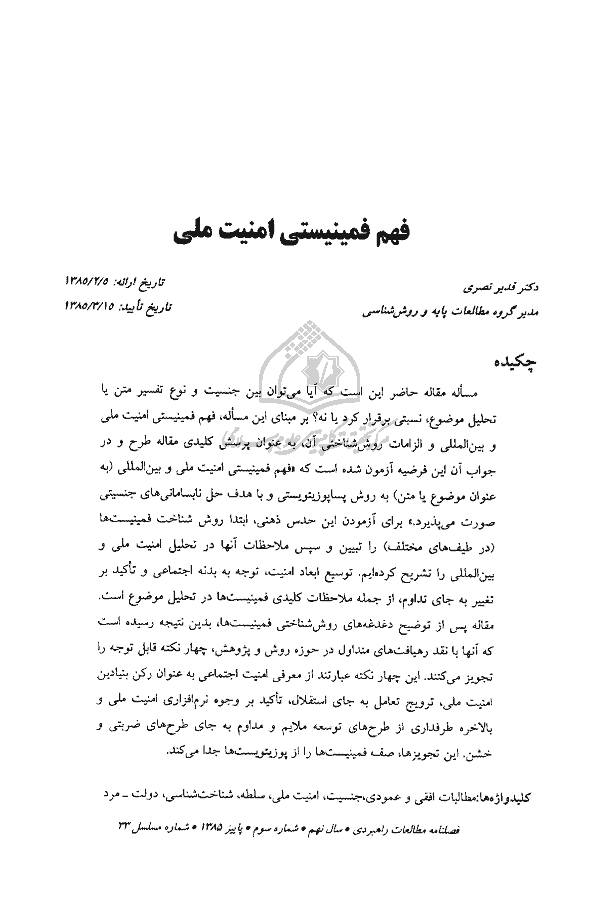 فهم فمینیستی امنیت ملی
تاریخ ارائه: ۱۳۸۵/۲/۵
دکتر قدیر نصری
تاریخ تأیید: ۱۳۸۵/۳/۱۵
مدیر گروه مطالعات پایه و روش‌شناسی
چکیده
مسأله مقاله حاضر این است که آیا می‌توان بین جنسیت و نوع تفسیر متن یا
تحلیل موضوع، نسبتی برقرار کرد یا نه؟ بر مبنای این مسأله، فهم فمینیستی امنیت ملی
و بین‌المللی و الزامات روش‌شناختی آن، به عنوان پرسش کلیدی مقاله طرح و در
جواب آن این فرضیه آزمون شده است که «فهم فمینیستی امنیت ملی و بین‌المللی (به
عنوان موضوع یا متن) به روش پساپوزیتویستی و با هدف حل نابسامانی‌های جنسیتی
صورت می‌پذیرد.» برای آزمودن این حدس ذهنی، ابتدا روش شناخت فمینیست‌ها
(در طیف‌های مختلف) را تبیین و سپس ملاحظات آنها در تحلیل امنیت ملی و
بین‌المللی را تشریح کرده‌ایم. توسیع ابعاد امنیت، توجه به بدنه اجتماعی و تأکید بر
تغییر به جای تداوم، از جمله ملاحظات کلیدی فمینیست‌ها در تحلیل موضوع است.
مقاله پس از توضیح دغدغه‌های روش‌شناختی فمینیست‌ها، بدین نتیجه رسیده است
که آنها با نقد رهیافت‌های متداول در حوزه روش و پژوهش، چهار نکته قابل توجه را
تجویز می‌کنند. این چهار نکته عبارتند از معرفی امنیت اجتماعی به عنوان رکن بنیادین
امنیت ملی، ترویج تعامل به جای استقلال، تأکید بر وجوه نرم‌افزاری امنیت ملی و
بالاخره طرفداری از طرح‌های توسعه ملایم و مداوم به جای طرح‌های ضربتی و
خشن. این تجویزها، صف فمینیست‌ها را از پوزیتویست‌ها جدا می‌کند.
کلیدواژه‌ها:مطالبات افقی و عمودی،جنسیت، امنیت ملی، سلطه، شناخت‌شناسی، دولت ـ مرد
فصلنامه مطالعات راهبردی • سال نهم • شماره سوم • پاییز ۱۳۸۵ • شماره مسلسل ۳۳